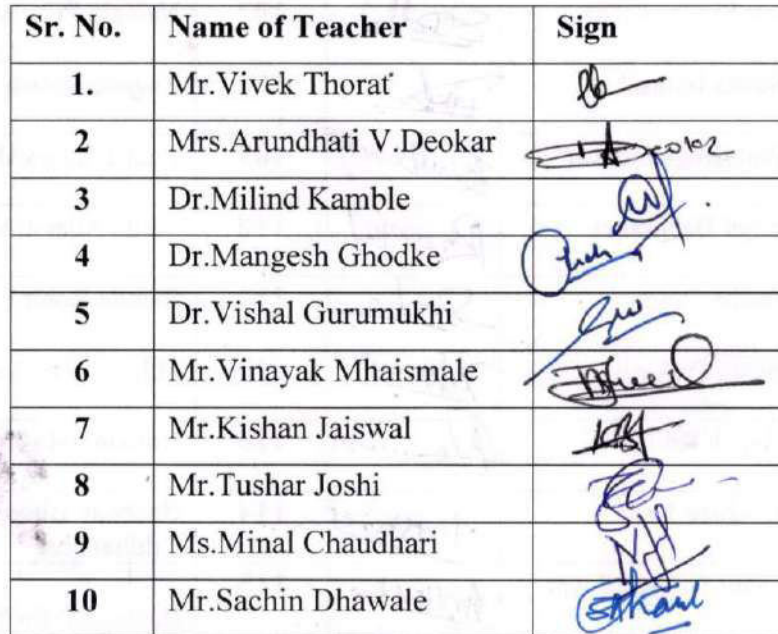 Sr. No. Name of Teacher Sign
1. Mr.Vivek Thorat
2 Mrs.Arundhati V.Deokar
3 Dr.Milind Kamble
4 Dr.Mangesh Ghodke
5 Dr.Vishal Gurumukhi
6 Mr.Vinayak Mhaismale
7 Mr.Kishan Jaiswal
8 Mr.Tushar Joshi
9 Ms.Minal Chaudhari
10 Mr.Sachin Dhawale